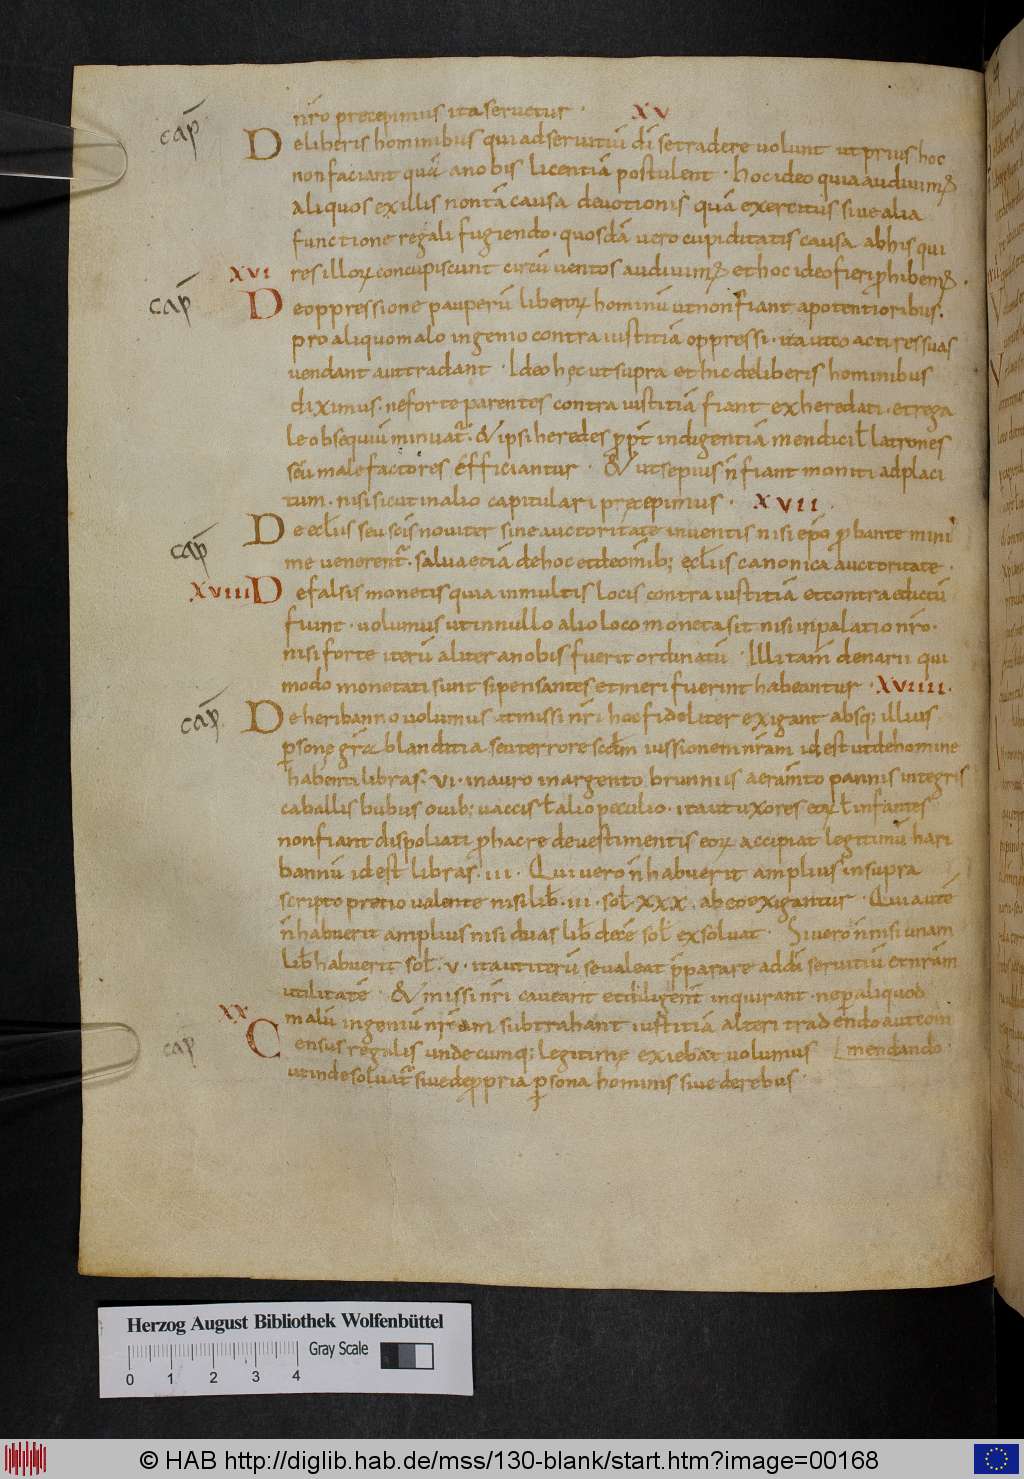 nr̄o precepimus ita servetur · XV
cap̄ De liberis hominibus qui ad servitiū dī se tradere volunt ut prius hoc
non faciant quā a nobis licentiā postulent · hoc ideo quia audivimꝰ
aliquos ex illis non tā causa devotionis quā exercitus sive alia
functione regali fugiendo · quosdā vero cupiditatis causa ab his qui
XVI res illoꝝ concupiscunt circū ventos audivimꝰ et hoc ideo fieri ꝓhibemꝰ ·
cap̄ De oppressione pauperū liberoꝝ hominū ut non fiant a potentioribus ·
pro aliquo malo ingenio contra iustitiā oppressi · ita ut coacti res suas
vendant aut tradant · Ideo hęc ut supra et hic de liberis hominibus
diximus · ne forte parentes contra iustitiā fiant exheredati · et rega
le obsequiū minuat̄ · & ipsi heredes ꝓpt̄ indigentiā mendici ł latrones
seu malefactores efficiantur · & ut sepius n̄ fiant moniti ad placi
tum · nisi sicut in alio capitulari pręcepimus · XVII ·
cap̄ De eccłiis seu scīs noviter sine auctoritate inventis nisi ep̄o ꝓbante mini
me venerent̄ · salva etiā de hoc et de omib; eccłiis canonica auctoritate ·
XVIII De falsis monetis quia in multis locis contra iustitiā et contra edictū
fiunt · volumus ut in nullo alio loco moneta sit nisi in palatio nr̄o ·
nisi forte iterū aliter a nobis fuerit ordinatū · Illi tam̄ denarii qui
modo monetati sunt si pensantes et meri fuerint habeantur · XVIIII ·
cap̄ De heribanno volumus ut missi nr̄i hoc fideliter exigant absq; illius
ꝑsonę gr̄a blanditia seu terrore scdm̄ iussionem nr̄am id est ut de homine
habenti libras · VI · in auro in argento brunniis aeram̄to pannis integris
caballis bubus ovib; vaccis ł alio peculio · ita ut uxores eoꝝ ł infantes
non fiant dispoliati ꝓ hac re de vestimentis eoꝝ accipiat legitimū hari
bannū id est libras · III · Qui vero n̄ habuerit amplius in supra
scripto pretio valente nisi lib̄ · III · soł · XXX · ab eo exigantur · Qui autē
n̄ habuerit amplius nisi duas lib̄ decē soł exsolvat · Si vero n̄ nisi unam
lib̄ habuerit soł · V · ita ut iterū se valeat p̄parare ad dī servitiū et nr̄am
utilitatē · & missi nr̄i caveant et diligent̄ inquirant · ne ꝑ aliquod
XX malū ingeniū nr̄am subtrahant iustitiā alteri tradendo aut com
cap̄ Census regalis undecumq; legitime exiebat volumus [mendando ·
ut inde solvat̄ sive de ꝓpria ꝑsona hominis sive de rebus ·
Herzog August Bibliothek Wolfenbüttel
Gray Scale
0 1 2 3 4
© HAB http://diglib.hab.de/mss/130-blank/start.htm?image=00168